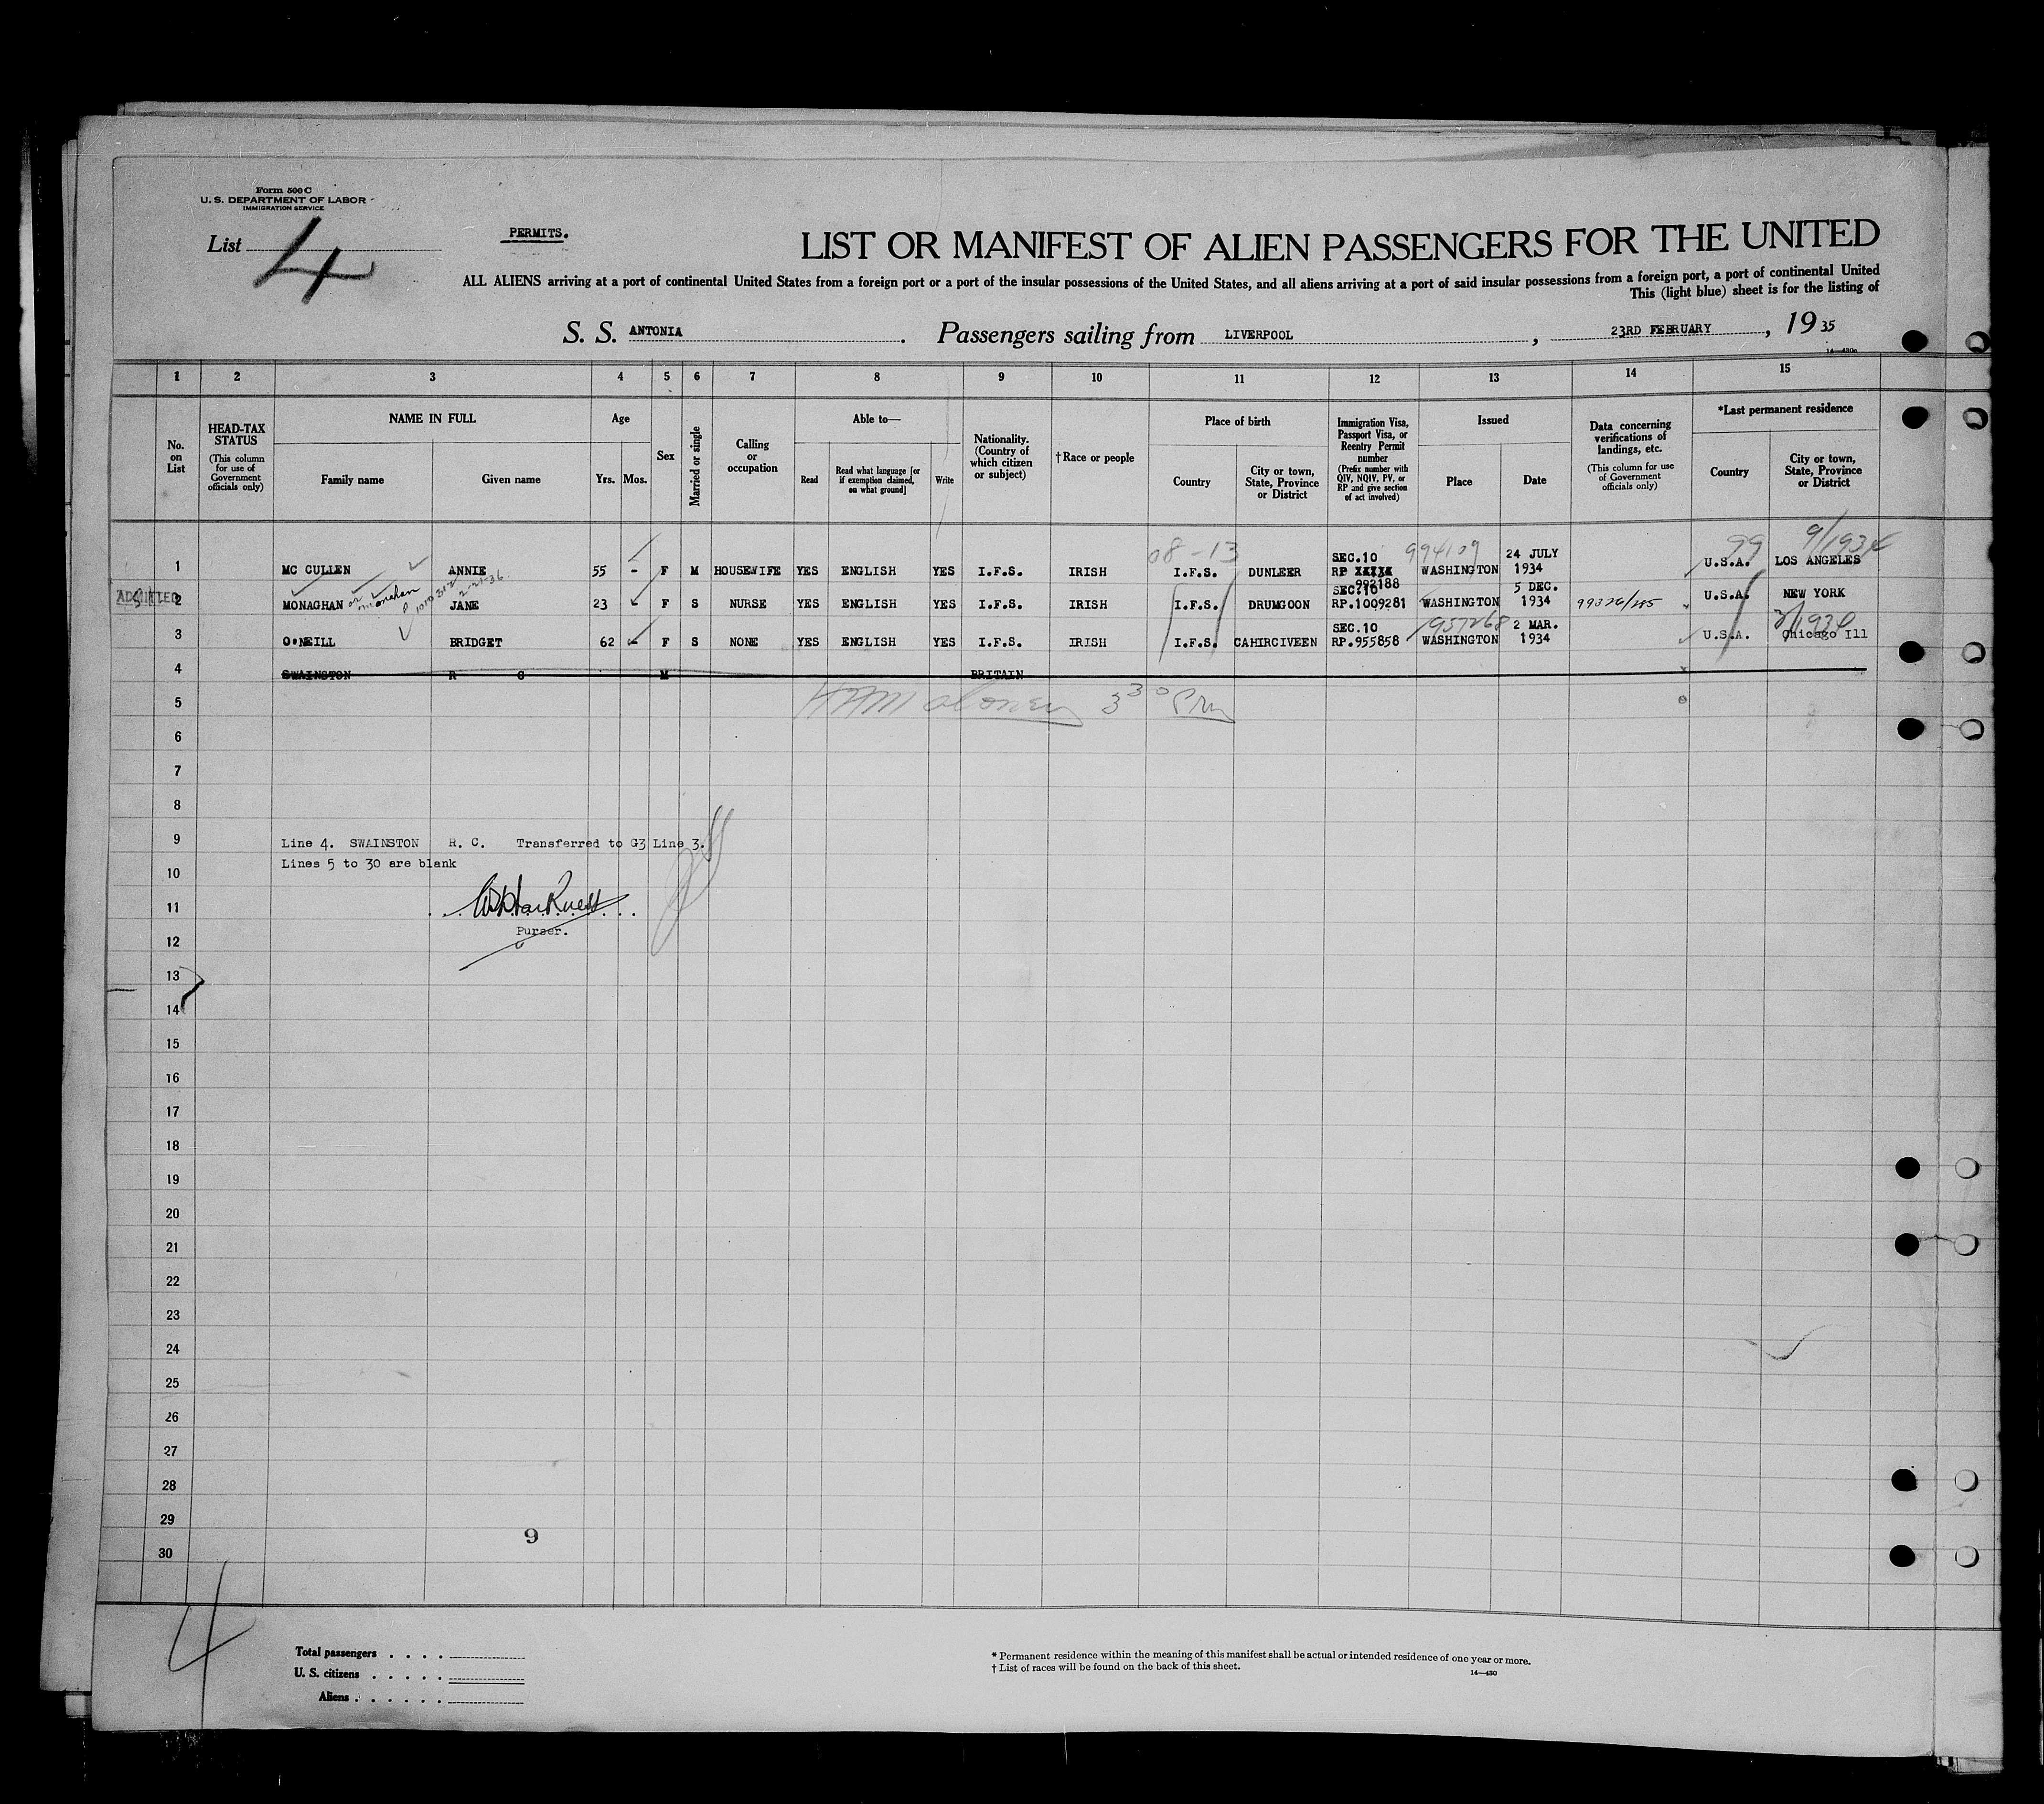 Form 500 C
U. S. DEPARTMENT OF LABOR
IMMIGRATION SERVICE
List 4
PERMITS.
LIST OR MANIFEST OF ALIEN PASSENGERS FOR THE UNITED
ALL ALIENS arriving at a port of continental United States from a foreign port or a port of the insular possessions of the United States, and all aliens arriving at a port of said insular possessions from a foreign port, a port of continental United
This (light blue) sheet is for the listing of
S. S. ANTONIA . Passengers sailing from LIVERPOOL , 23RD FEBRUARY , 19 35
1 2 3 4 5 6 7 8 9 10 11 12 13 14 15
No. on List
HEAD-TAX STATUS (This column for use of Government officials only)
NAME IN FULL
Family name Given name
Age
Yrs. Mos.
Sex
Married or single
Calling or occupation
Able to—
Read Read what language [or if exemption claimed, on what ground] Write
Nationality. (Country of which citizen or subject)
† Race or people
Place of birth
Country City or town, State, Province or District
Immigration Visa, Passport Visa, or Reentry Permit number (Prefix number with QIV, NQIV, PV, or RP and give section of act involved)
Issued
Place Date
Data concerning verifications of landings, etc. (This column for use of Government officials only)
*Last permanent residence
Country City or town, State, Province or District
08-13 994109 99 9/1934
1 MC CULLEN ANNIE 55 - F M HOUSEWIFE YES ENGLISH YES I.F.S. IRISH I.F.S. DUNLEER SEC.10 RP 992188 WASHINGTON 24 JULY 1934 U.S.A. LOS ANGELES
ADMITTED 2 MONAGHAN or Monahan JANE 23 F S NURSE YES ENGLISH YES I.F.S. IRISH I.F.S. DRUMGOON SEC.10 RP.1009281 WASHINGTON 5 DEC. 1934 U.S.A. NEW YORK
3 O'NEILL BRIDGET 62 - F S NONE YES ENGLISH YES I.F.S. IRISH I.F.S. CAHIRCIVEEN SEC.10 RP.955858 957268 WASHINGTON 2 MAR. 1934 U.S.A. Chicago Ill
4 SWAINSTON R C M BRITAIN
5 3 30 Pm
6
7
8
9 Line 4. SWAINSTON R. C. Transferred to G3 Line 3.
Lines 5 to 30 are blank
10
11
Purser.
12
13
14
15
16
17
18
19
20
21
22
23
24
25
26
27
28
29
9
30
4
Total passengers
U. S. citizens
Aliens
* Permanent residence within the meaning of this manifest shall be actual or intended residence of one year or more.
† List of races will be found on the back of this sheet.
14—430